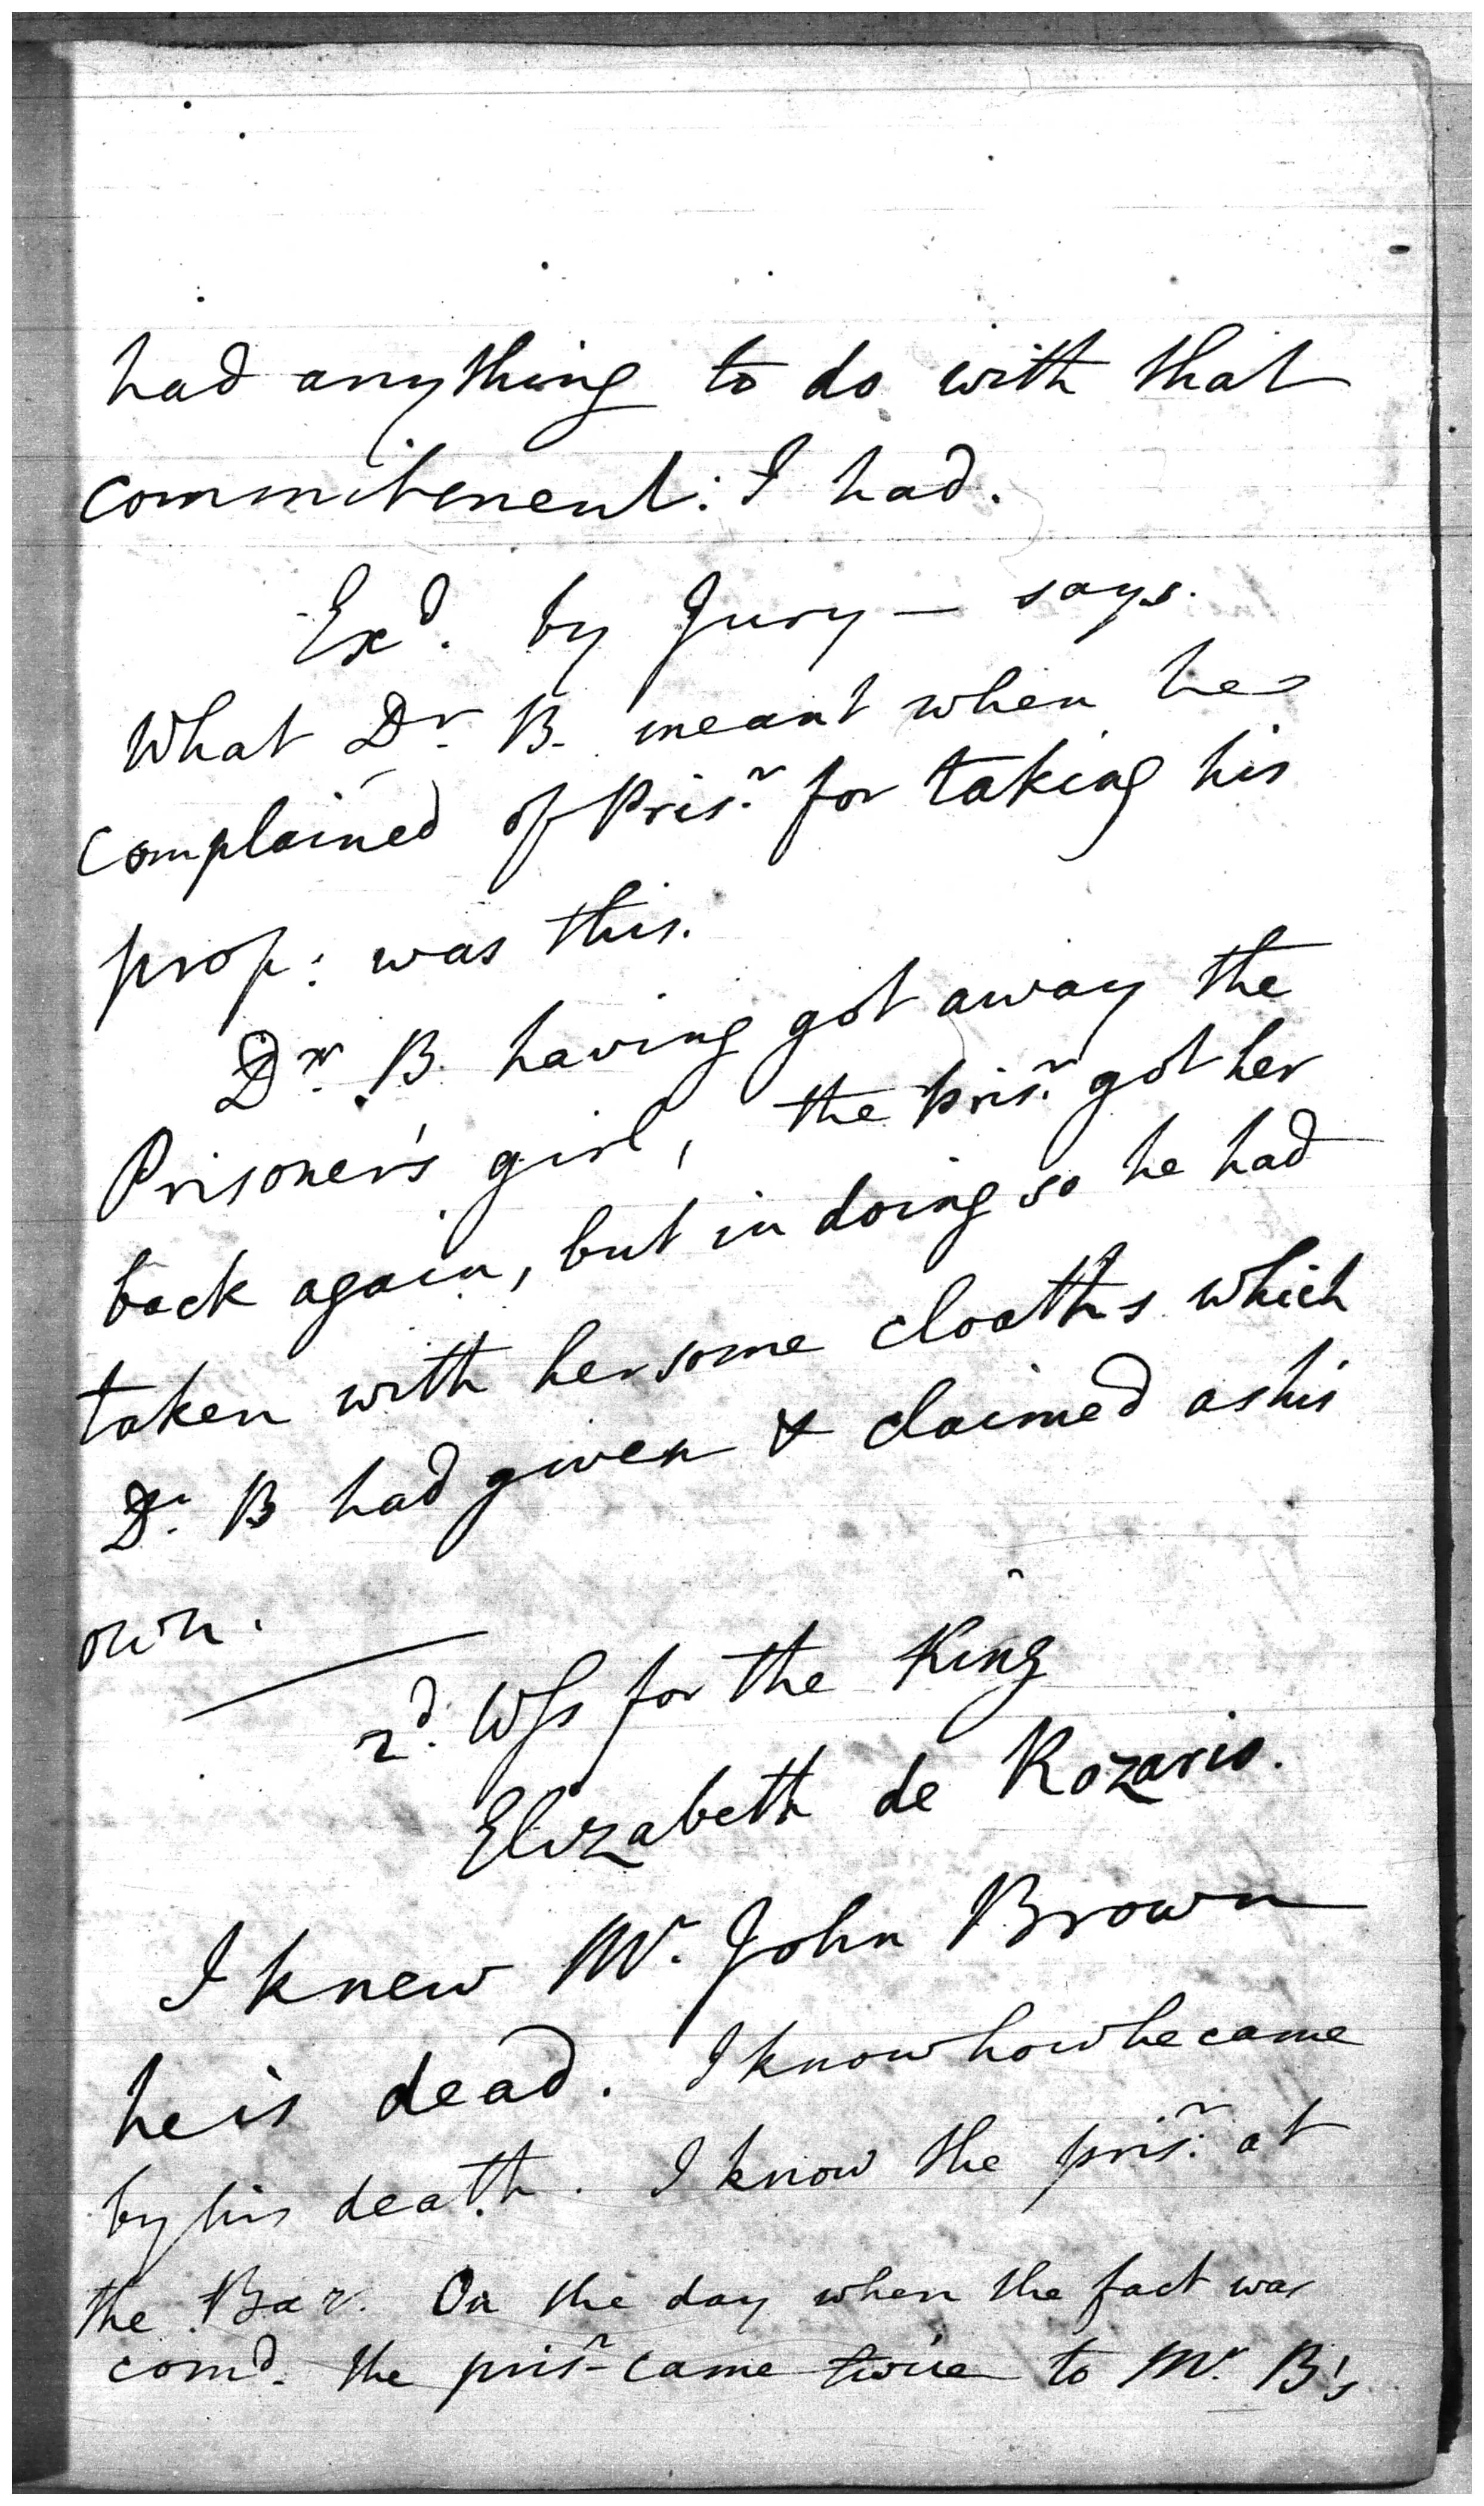 had anything to do with that
commitment: I had.
Exd. by Jury — says.
What Dr. B. meant when he
complained of Prisr. for taking his
prop: was this.
Dr. B. having got away the
Prisoner's girl, the prisr. got her
back again, but in doing so he had
taken with her some cloaths which
Dr. B had given & claimed as his
own.
2d. Wss for the King
Elizabeth de Rozario.
I knew Mr. John Brown
he is dead. I know how he came
by his death. I know the prisr. at
the Bar. On the day when the fact was
comd. the prisr. came twice to Mr. B's